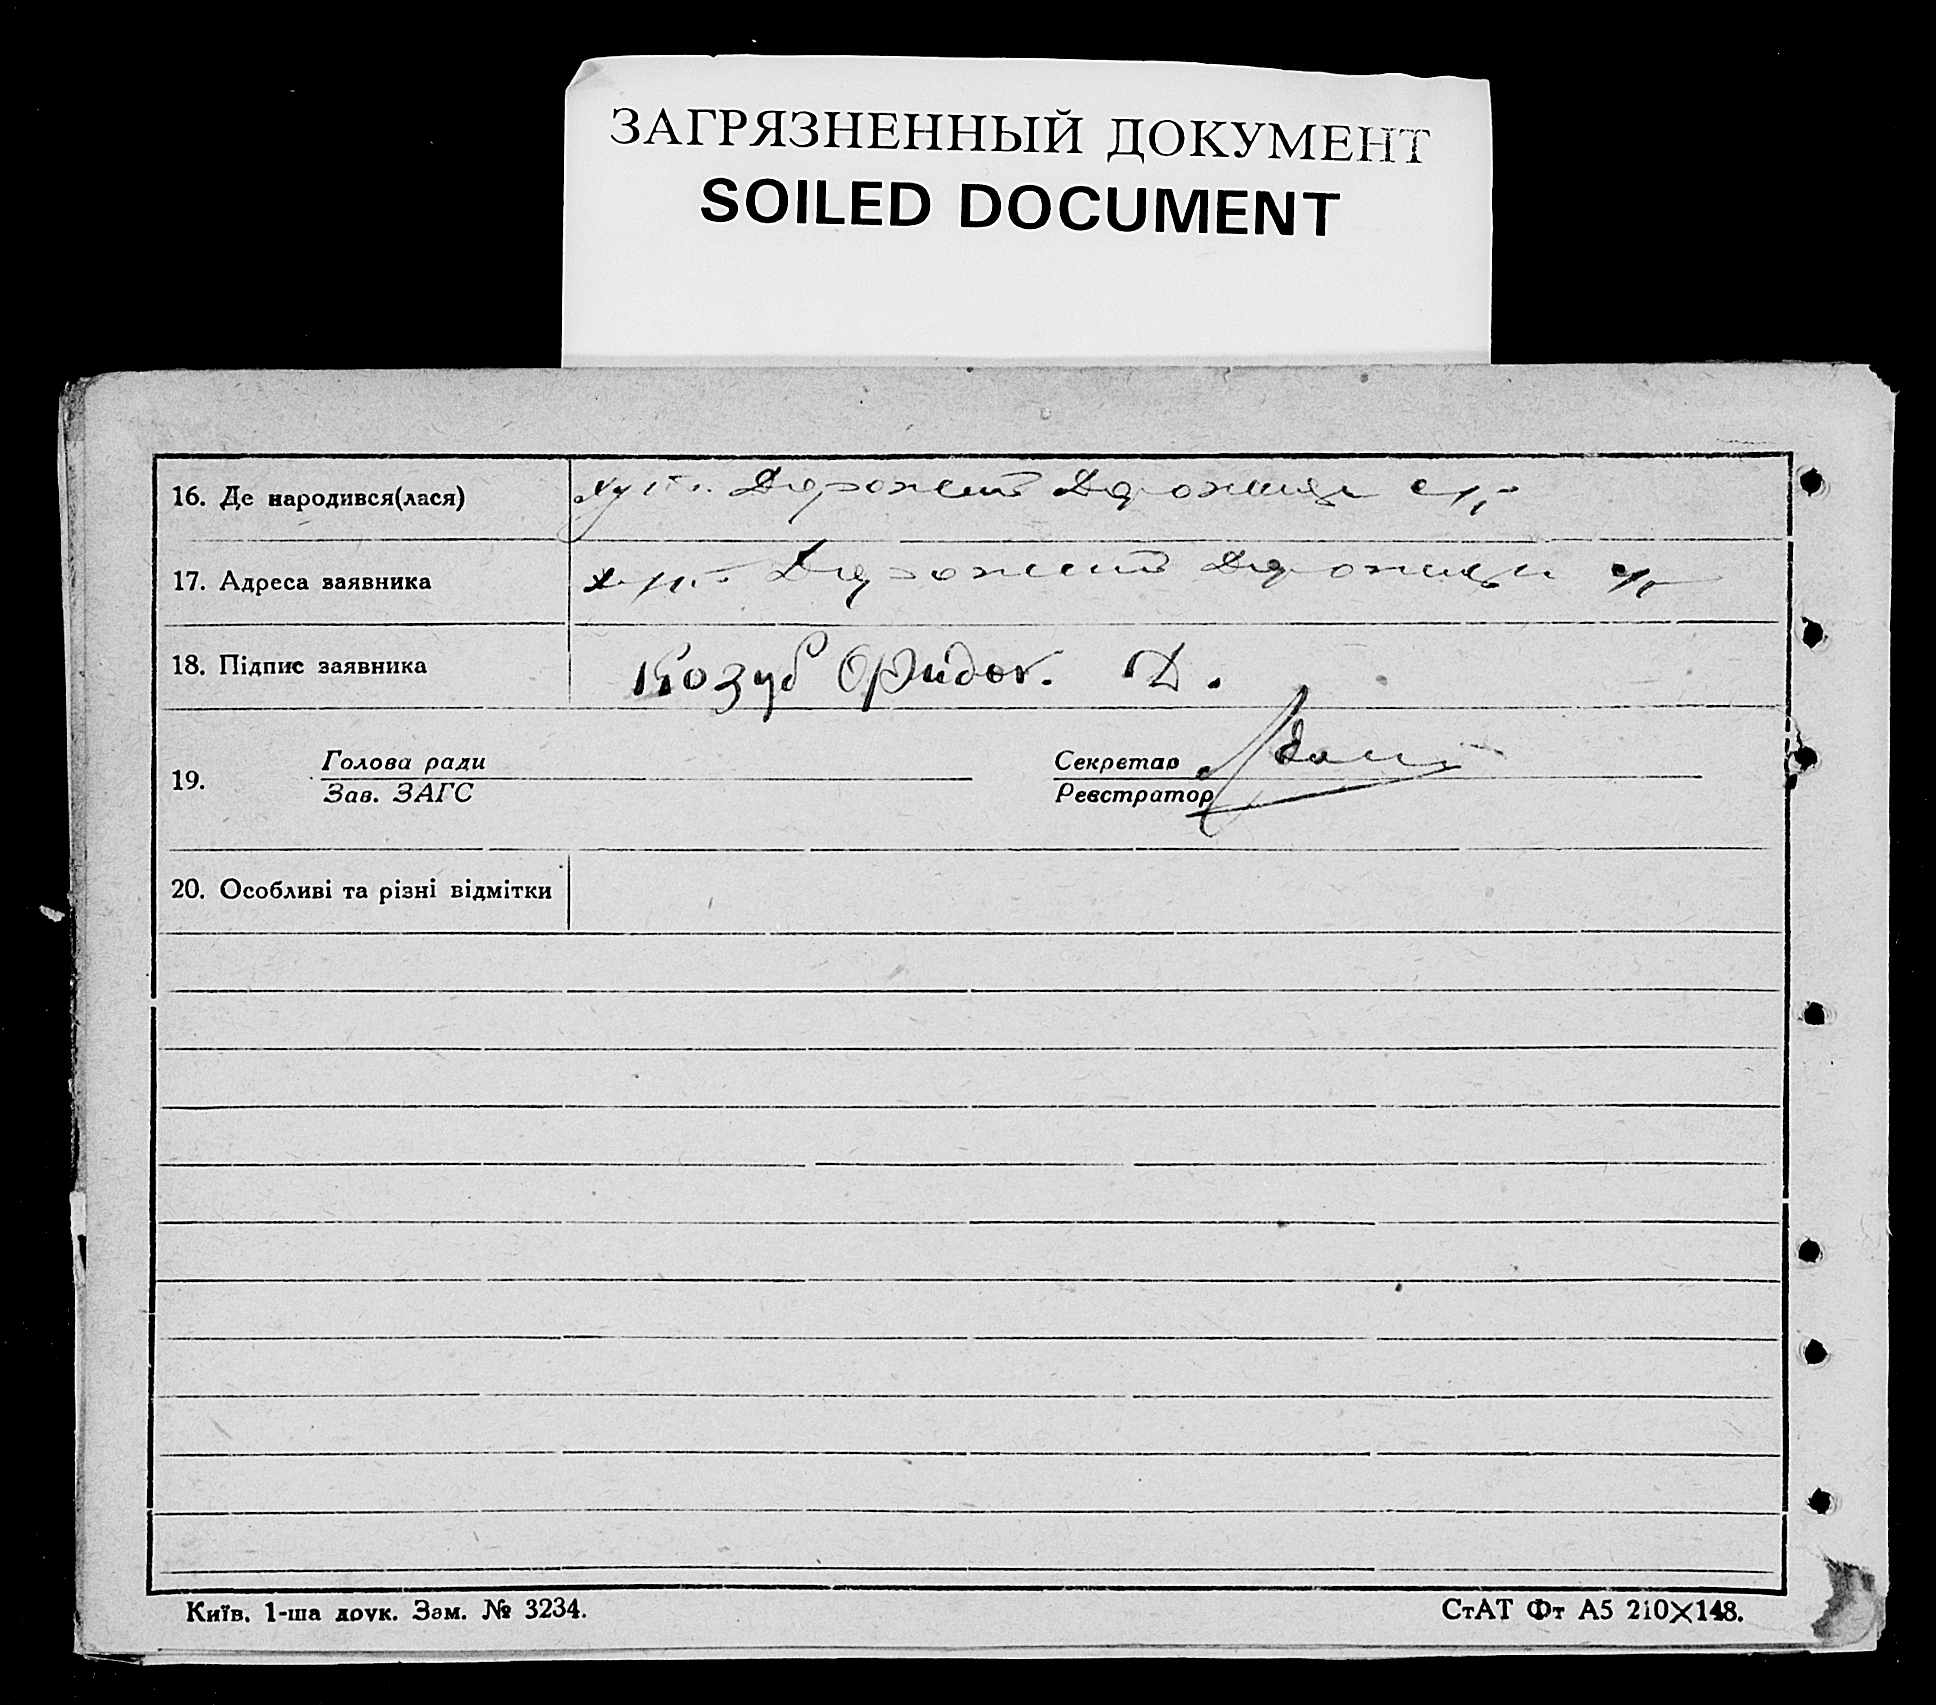 ЗАГРЯЗНЕННЫЙ ДОКУМЕНТ
SOILED DOCUMENT
16. Де народився(лася) хут.
17. Адреса заявника хут.
18. Підпис заявника Козуб Д.
19. Голова ради Секретар
Зав. ЗАГС Реєстратор
20. Особливі та різні відмітки
Київ. 1-ша друк. Зам. № 3234. СтАТ Фт А5 210×148.